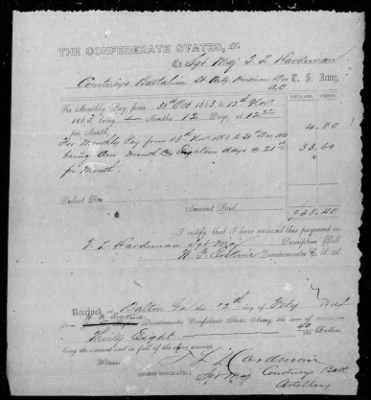 THE CONFEDERATE STATES, Dr.
To Sgt. Maj. T. L. Hardeman
Courtneys Battalion Lt Arty C. S. Army,
DOLLARS CTS
For Monthly Pay from 31st Oct 1863, to 12th Nov.
1863, being — Months 12 Days, at 12.00 4.80
per Month,
For Monthly Pay from 13th Nov 1863 to 31st Dec 1863
being One month & Eighteen days @ 21.00 33.60
per Month.
Amount Paid, $38.40
I certify that I have endorsed this payment on
T. L. Hardeman Sgt Maj Descriptive Roll
Quartermaster C. S. A.
Received at Dalton Ga this 12th day of Feby 1864
from Quartermaster Confederate States Army, the sum of
Thirty Eight 40 Dollars
being the amount and in full of the above account.
Witness
(SIGNED DUPLICATES.)
T. L. Hardeman
Sgt Maj Courtneys Batt
Artillery